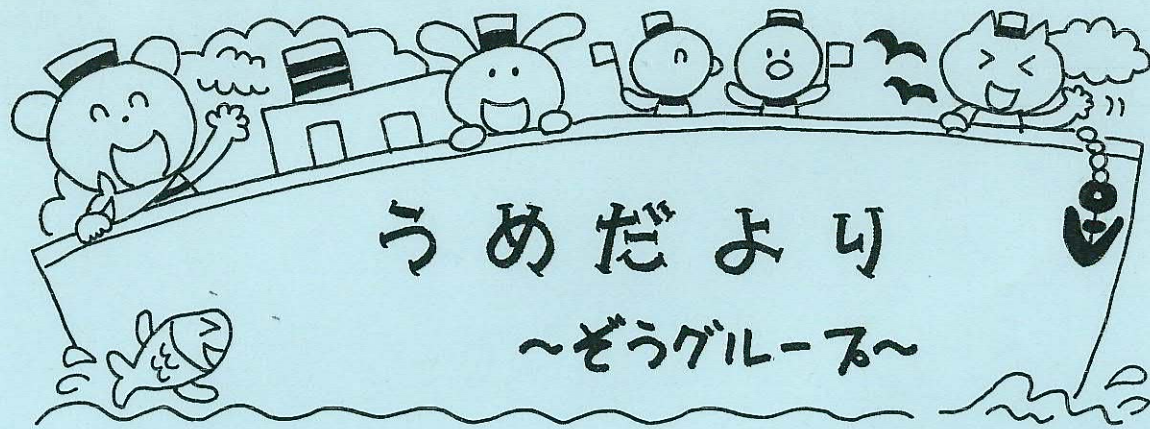 うめだより
～ぞうグループ～